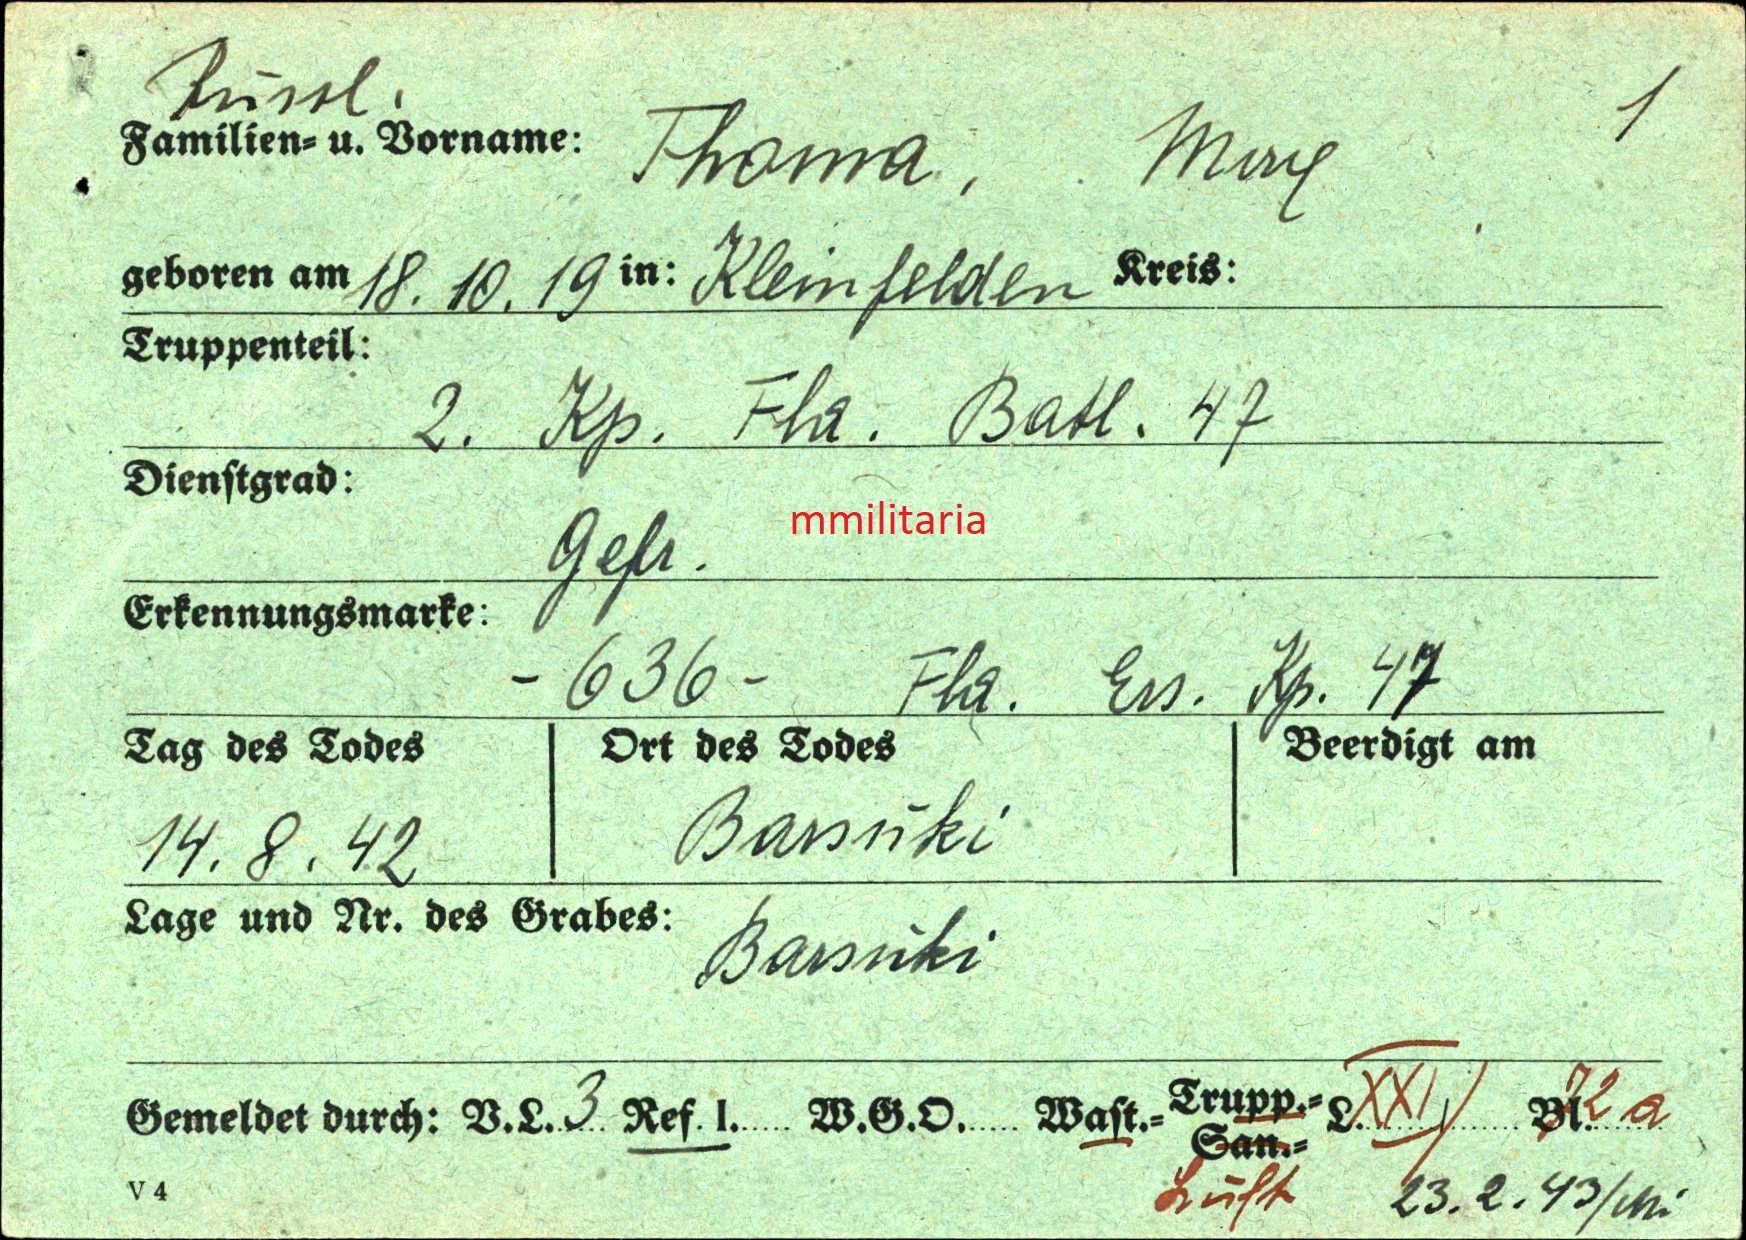 Russl. 1
Familien- u. Vorname: Thoma, Max
geboren am 18.10.19 in: Kleinfelden Kreis:
Truppenteil:
2. Kp. Fla. Batl. 47
Dienstgrad:
mmilitaria
Gefr.
Erkennungsmarke:
-636- Fla. Ers. Kp. 47
Tag des Todes Ort des Todes Beerdigt am
14.8.42 Barsuki
Lage und Nr. des Grabes: Barsuki
Gemeldet durch: V.L. 3 Ref. I. W.G.O. Wast.- Trupp.- L. XXI Bl. 72 a
San.-
V 4 Luft 23.2.43/